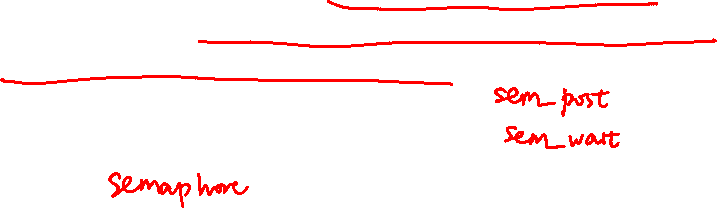 sem_post
sem_wait
semaphore